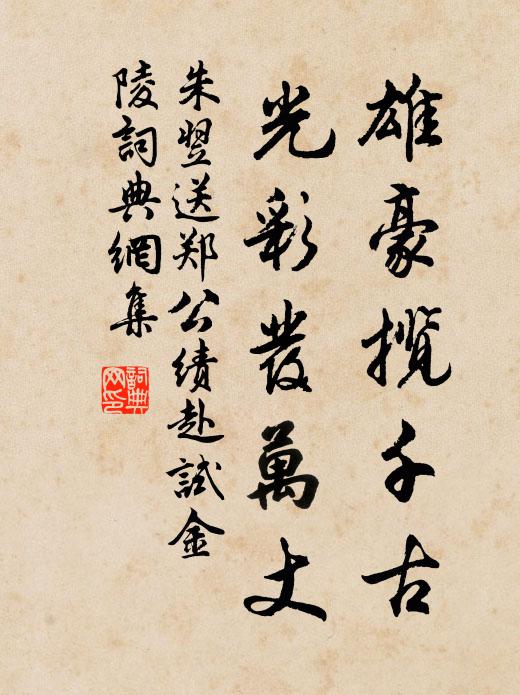 雄豪揽千古
光彩發萬丈
朱翌送郑公绩赴試金
陵詞典網集
詞典
网印